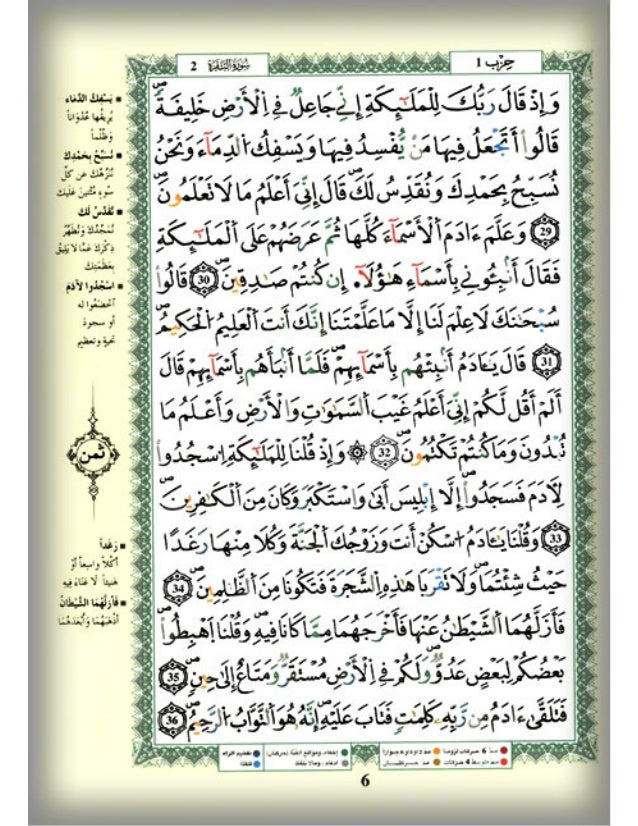 سُورَةُ البَقَرَة 2
حِزْب 1
وَإِذْ قَالَ رَبُّكَ لِلْمَلَٰٓئِكَةِ إِنِّے جَاعِلٌ فِے اِلْأَرْضِ خَلِيفَةٗۖ
قَالُوٓاْ أَتَجْعَلُ فِيهَا مَنْ يُّفْسِدُ فِيهَا وَيَسْفِكُ اُلدِّمَآءَ وَنَحْنُ
نُسَبِّحُ بِحَمْدِكَ وَنُقَدِّسُ لَكَۖ قَالَ إِنِّيَ أَعْلَمُ مَا لَا تَعْلَمُونَۖ
29 وَعَلَّمَ ءَادَمَ اَلْأَسْمَآءَ كُلَّهَا ثُمَّ عَرَضَهُمْ عَلَى اَلْمَلَٰٓئِكَةِ
فَقَالَ أَنۢبِـُٔونِے بِأَسْمَآءِ هَٰٓؤُلَآءِ اِن كُنتُمْ صَٰدِقِينَۖ 30 قَالُواْ
سُبْحَٰنَكَ لَا عِلْمَ لَنَآ إِلَّا مَا عَلَّمْتَنَآۖ إِنَّكَ أَنتَ اَلْعَلِيمُ اُلْحَكِيمُۖ
31 قَالَ يَٰٓـَٔادَمُ أَنۢبِئْهُم بِأَسْمَآئِهِمْۖ فَلَمَّآ أَنۢبَأَهُم بِأَسْمَآئِهِمْ قَالَ
أَلَمْ أَقُل لَّكُمْ إِنِّيَ أَعْلَمُ غَيْبَ اَلسَّمَٰوَٰتِ وَالْأَرْضِ وَأَعْلَمُ مَا
تُبْدُونَ وَمَا كُنتُمْ تَكْتُمُونَۖ 32 ۞ وَإِذْ قُلْنَا لِلْمَلَٰٓئِكَةِ اِسْجُدُواْ
لِأٓدَمَ فَسَجَدُوٓاْ إِلَّآ إِبْلِيسَ أَبَىٰ وَاسْتَكْبَرَ وَكَانَ مِنَ اَلْكَٰفِرِينَۖ
33 وَقُلْنَا يَٰٓـَٔادَمُ اُسْكُنْ أَنتَ وَزَوْجُكَ اَلْجَنَّةَ وَكُلَا مِنْهَا رَغَداً
حَيْثُ شِئْتُمَاۖ وَلَا تَقْرَبَا هَٰذِهِ اِلشَّجَرَةَ فَتَكُونَا مِنَ اَلظَّٰلِمِينَۖ 34
فَأَزَلَّهُمَا اَلشَّيْطَٰنُ عَنْهَا فَأَخْرَجَهُمَا مِمَّا كَانَا فِيهِۖ وَقُلْنَا اَهْبِطُواْ
بَعْضُكُمْ لِبَعْضٍ عَدُوّٞۖ وَلَكُمْ فِے اِلْأَرْضِ مُسْتَقَرّٞ وَمَتَٰعٌ إِلَىٰ حِينٖۖ 35
فَتَلَقَّىٰٓ ءَادَمُ مِن رَّبِّهِۦ كَلِمَٰتٖ فَتَابَ عَلَيْهِۖ إِنَّهُۥ هُوَ اَلتَّوَّابُ اُلرَّحِيمُۖ 36
■ يَسْفِكُ الدِّمَاء
يُرِيقُها عُدْوَاناً
وَظُلْماً
■ نُسَبِّحُ بِحَمْدِكَ
نُنَزِّهُكَ عن كلِّ
سُوءٍ مُثْنِينَ عَلَيك
■ نُقَدِّسُ لَك
نُمَجِّدُكَ وَنُطَهِّرُ
ذِكْرَكَ عَمَّا لا يَلِيقُ
بِعَظَمَتِكَ
■ اسْجُدُوا لِآدَمَ
اخْضَعُوا له
أو سجودَ
تحيةٍ وتعظيمٍ
ثمن
■ رَغَداً
أكْلاً واسِعاً أوْ
هَنِيئاً لا عَنَاءَ فِيهِ
■ فَأَزَلَّهُمَا الشَّيْطَانُ
أذْهَبَهُمَا وَأبْعَدَهُمَا
مدّ 6 حركات لزوماً
مدّ 2 أو 4 أو 6 جوازاً
إخفاء، ومواقع الغُنَّة (حركتان)
تفخيم الراء
مدّ حركتان
إدغام، وما لا يُلفَظ
قلقلة
6